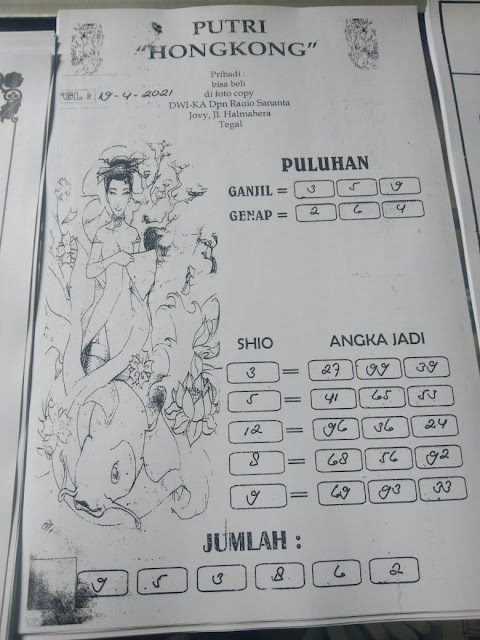 PUTRI
"HONGKONG"
Pribadi :
bisa beli
di foto copy
DWI-KA Dpn Rauio Sananta
Jovy, Jl. Halmahera
Tegal
GL : 19-4-2021
PULUHAN
GANJIL = 3 5 9
GENAP = 2 6 4
SHIO ANGKA JADI
3 = 27 99 39
5 = 41 65 53
12 = 96 36 24
8 = 68 56 92
9 = 69 93 33
JUMLAH :
9 5 3 8 6 2